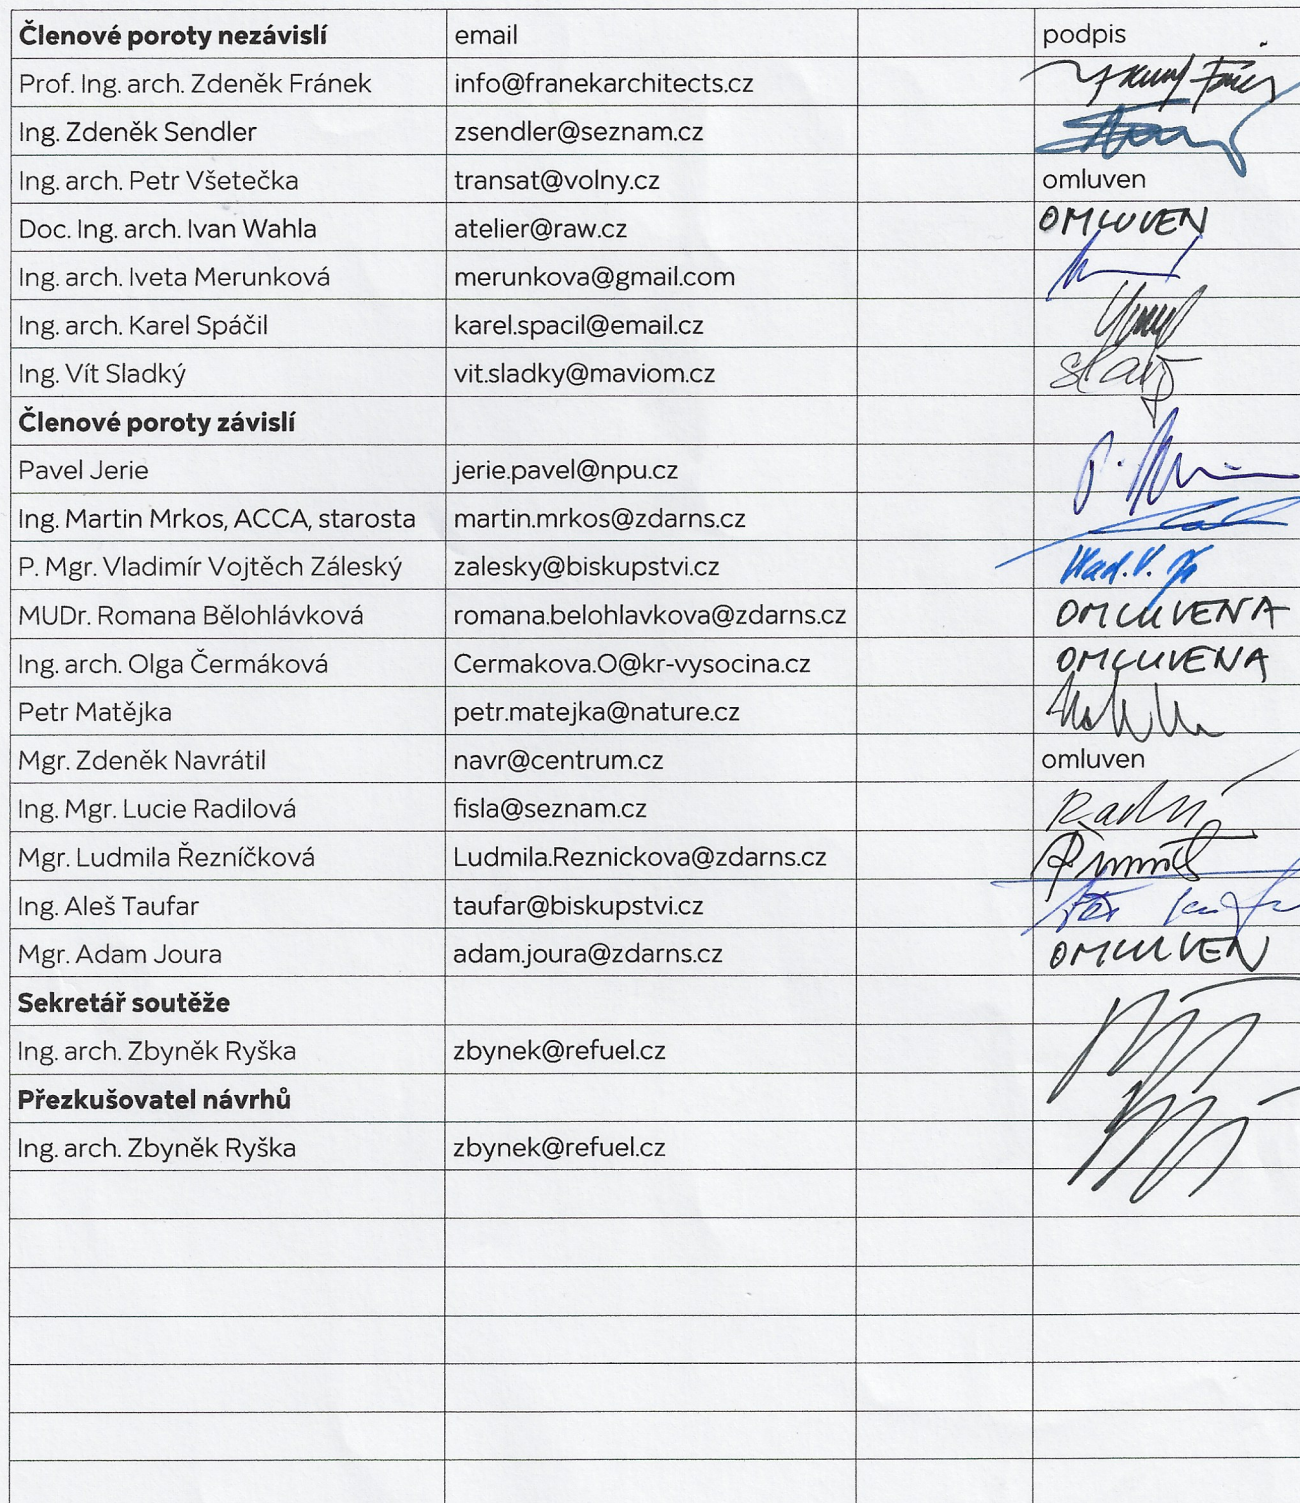 Členové poroty nezávislí email podpis
Prof. Ing. arch. Zdeněk Fránek info@franekarchitects.cz
Ing. Zdeněk Sendler zsendler@seznam.cz
Ing. arch. Petr Všetečka transat@volny.cz omluven
Doc. Ing. arch. Ivan Wahla atelier@raw.cz OMLUVEN
Ing. arch. Iveta Merunková merunkova@gmail.com
Ing. arch. Karel Spáčil karel.spacil@email.cz
Ing. Vít Sladký vit.sladky@maviom.cz
Členové poroty závislí
Pavel Jerie jerie.pavel@npu.cz
Ing. Martin Mrkos, ACCA, starosta martin.mrkos@zdarns.cz
P. Mgr. Vladimír Vojtěch Záleský zalesky@biskupstvi.cz
MUDr. Romana Bělohlávková romana.belohlavkova@zdarns.cz OMLUVENA
Ing. arch. Olga Čermáková Cermakova.O@kr-vysocina.cz OMLUVENA
Petr Matějka petr.matejka@nature.cz
Mgr. Zdeněk Navrátil navr@centrum.cz omluven
Ing. Mgr. Lucie Radilová fisla@seznam.cz
Mgr. Ludmila Řezníčková Ludmila.Reznickova@zdarns.cz
Ing. Aleš Taufar taufar@biskupstvi.cz
Mgr. Adam Joura adam.joura@zdarns.cz OMLUVEN
Sekretář soutěže
Ing. arch. Zbyněk Ryška zbynek@refuel.cz
Přezkušovatel návrhů
Ing. arch. Zbyněk Ryška zbynek@refuel.cz